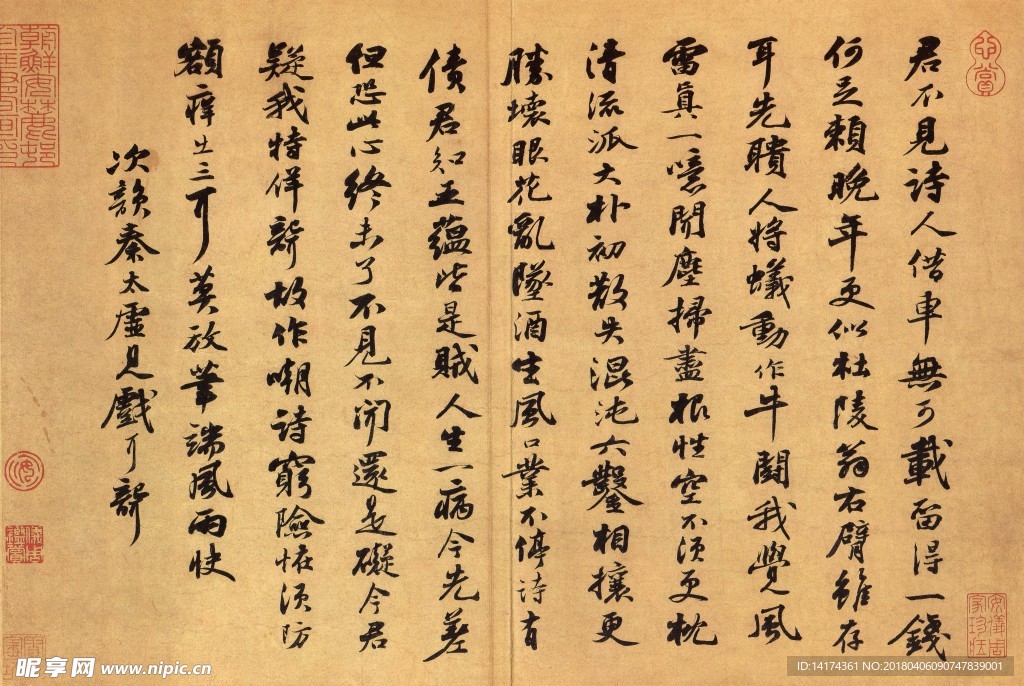 君不見詩人借車無可載留得一錢
何足賴晚年更似杜陵翁右臂雖存
耳先聵人將蟻動作牛鬪我覺風
雷真一噫聞塵掃盡根性空不須更枕
清流派大朴初散失混沌六鑿相攘更
勝壞眼花亂墜酒生風口業不停詩有
債君知五蘊皆是賊人生一病今先差
但恐此心終未了不見不聞還是礙今君
疑我特佯聾故作嘲詩窮險怪須防
額癢出三耳莫放筆端風雨快
次韻秦太虛見戲耳聾
朝鮮安岐珍藏
心賞
安儀周家珍藏
昵享网 www.nipic.cn
ID:14174361 NO:20180406090747839001